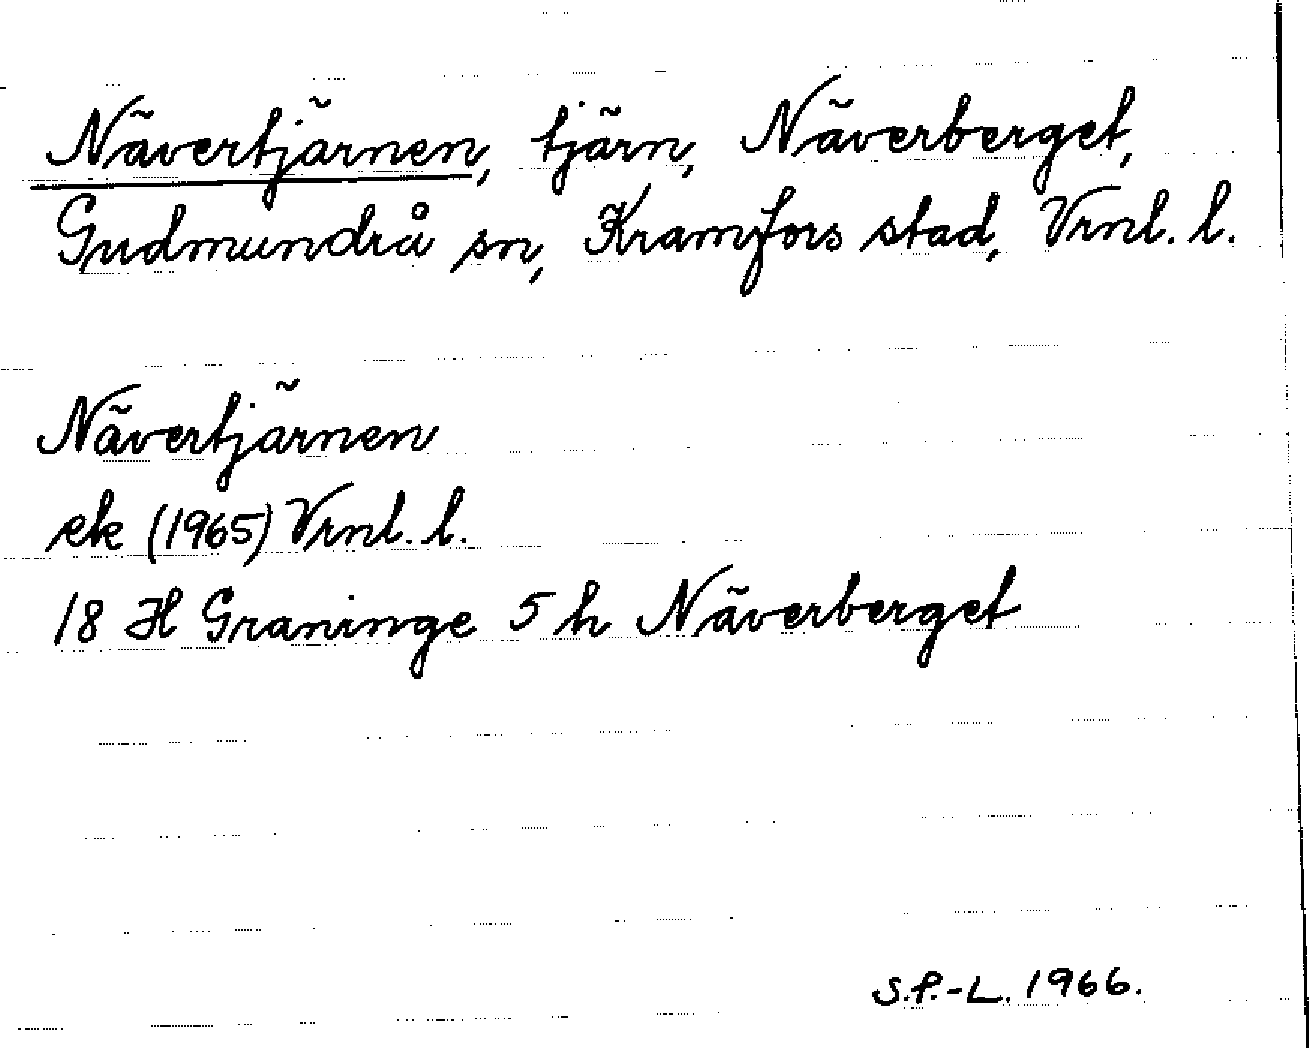 Nävertjärnen, tjärn, Näverberget,
Gudmundrå sn, Kramfors stad, Vrnl. l.
Nävertjärnen
ek (1965) Vrnl. l.
18 H Graninge 5 h Näverberget
S.P.-L. 1966.